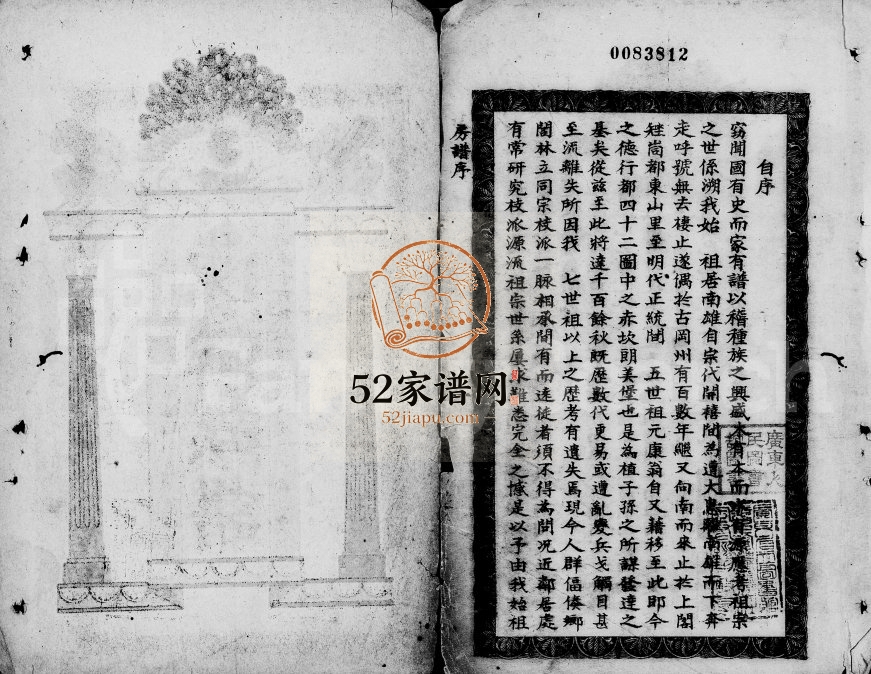 0083812
自序
竊聞國有史而家有譜以稽種族之興盛木有本而水有源應考祖宗
之世係溯我始 祖居南雄自宗代開禧間為遭大患離南雄而下奔
走呼號無去棲止遂偶於古岡州有百數年繼又向南而來止於上閣
矬崗都東山里至明代正統間 五世祖元康翁自又藉移至此即今
之德行都四十二圖中之赤坎朗美堡也是為植子孫之所謀發達之
基矣從茲至此將達千百餘秋既歷數代更易或遭亂變兵戈觸目甚
至流離失所因我 七世祖以上之歷考有遺失焉現今人群偪倭鄉
閭林立同宗枝派一脉相承間有而遠徙者須不得為問况近鄰居處
有常研究枝派源流祖宗世系屢求難悉完全之憾是以予由我始祖
房譜序
52家谱网
52jiapu.com
廣東人
民圖書